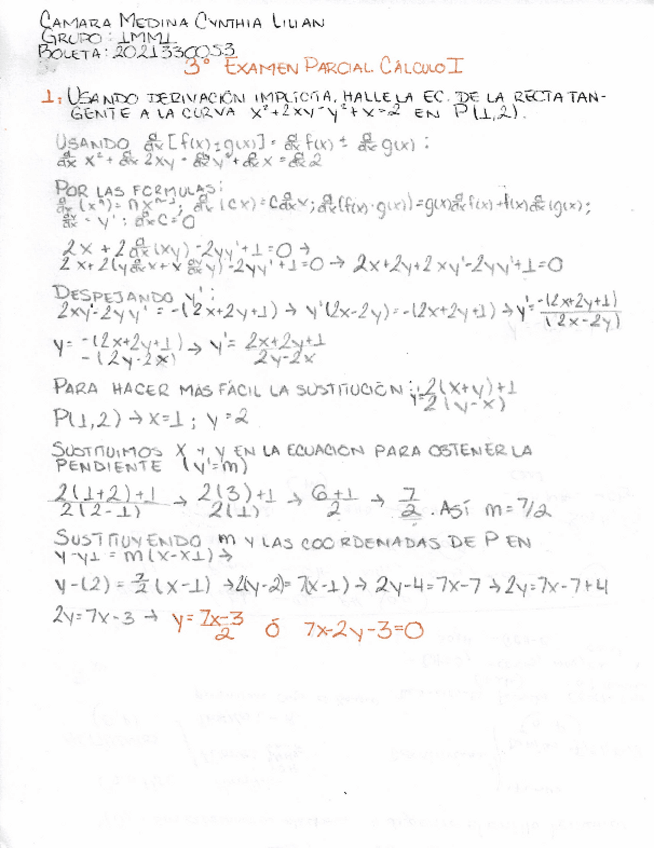 CAMARA MEDINA CYNTHIA LILIAN
GRUPO: 1MM1
BOLETA: 2021330053
3° EXAMEN PARCIAL. CÁLCULO I
1: USANDO DERIVACIÓN IMPLÍCITA, HALLE LA EC. DE LA RECTA TAN-
GENTE A LA CURVA x²+2xy-y²+x=2 EN P(1,2).
USANDO d/dx [f(x) ± g(x)] = d/dx f(x) ± d/dx g(x):
d/dx x² + d/dx 2xy - d/dx y² + d/dx x = d/dx 2
POR LAS FORMULAS:
d/dx (xⁿ) = nxⁿ⁻¹; d/dx (cx) = c d/dx x; d/dx (f(x)·g(x)) = g(x) d/dx f(x) + f(x) d/dx (g(x));
dy/dx = y'; d/dx c = 0
2x + 2 d/dx (xy) - 2yy' + 1 = 0 →
2x + 2(y d/dx x + x d/dx y) - 2yy' + 1 = 0 → 2x+2y+2xy'-2yy'+1=0
DESPEJANDO y':
2xy'-2yy' = -(2x+2y+1) → y'(2x-2y) = -(2x+2y+1) → y' = -(2x+2y+1)/(2x-2y)
y = -(2x+2y+1)/-(2y-2x) → y' = 2x+2y+1/2y-2x
PARA HACER MÁS FÁCIL LA SUSTITUCIÓN: y = 2(x+y)+1/2(y-x)
P(1,2) → x=1; y=2
SUSTITUIMOS X Y Y EN LA ECUACIÓN PARA OBTENER LA
PENDIENTE (y'=m)
2(1+2)+1/2(2-1) → 2(3)+1/2(1) → 6+1/2 → 7/2. ASÍ m=7/2
SUSTITUYENDO m Y LAS COORDENADAS DE P EN
y-y1 = m(x-x1) →
y-(2) = 7/2 (x-1) → 2(y-2) = 7(x-1) → 2y-4=7x-7 → 2y=7x-7+4
2y=7x-3 → y = 7x-3/2 Ó 7x-2y-3=0